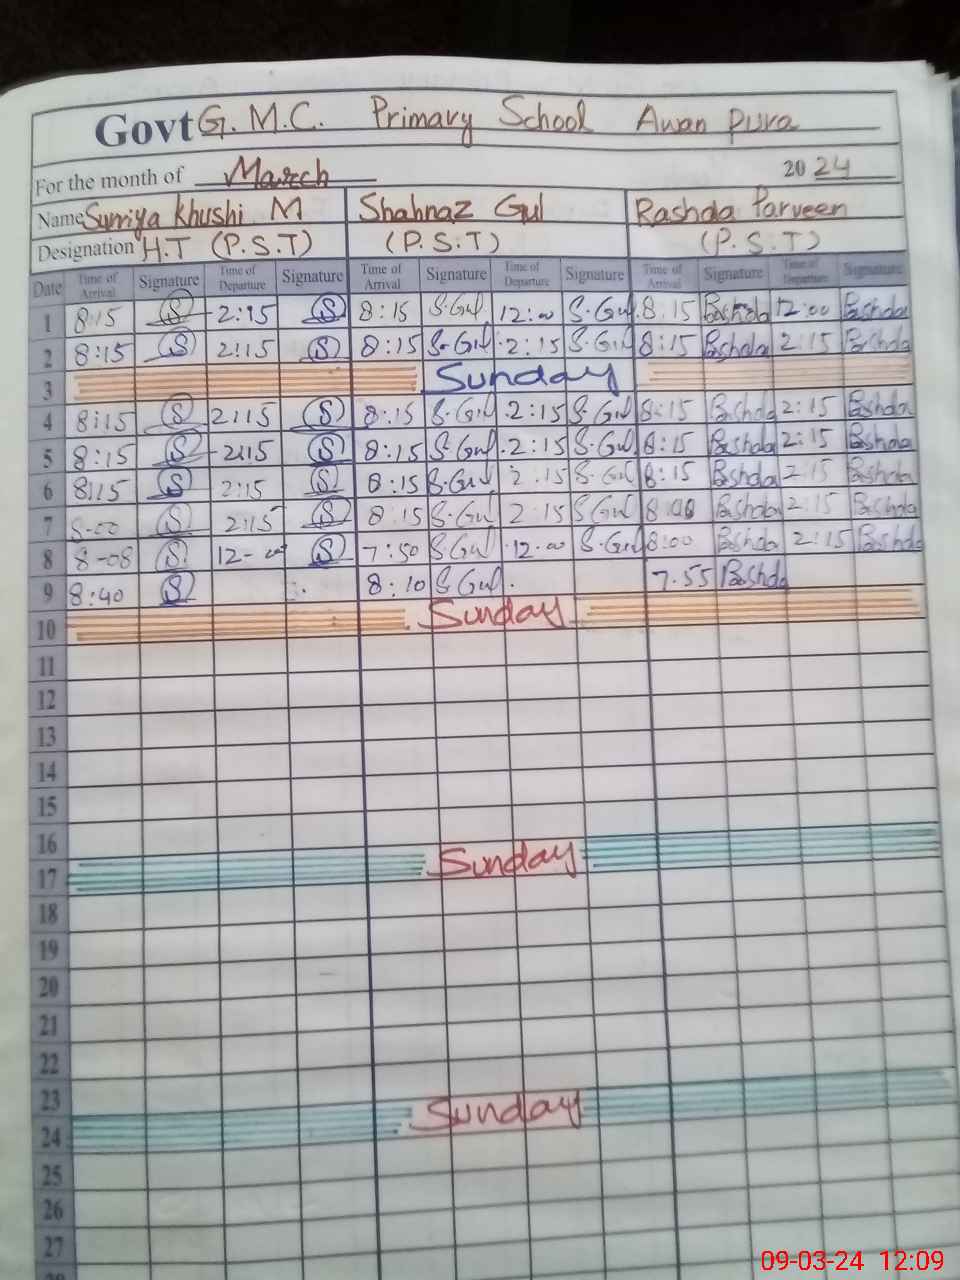 Govt G.M.C. Primary School Awan Pura
For the month of March 2024
Name Surriya Khushi M Shahnaz Gul Rashda Parveen
Designation H.T (P.S.T) (P.S.T) (P.S.T)
Date Time of Arrival Signature Time of Departure Signature Time of Arrival Signature Time of Departure Signature Time of Arrival Signature Time of Departure Signature
1 8:15 S 2:15 S 8:15 S.Gul 12:00 S.Gul 8:15 Rashda 12:00 Rashda
2 8:15 S 2:15 S 8:15 S.Gul 2:15 S.Gul 8:15 Rashda 2:15 Rashda
3 Sunday
4 8:15 S 2:15 S 8:15 S.Gul 2:15 S.Gul 8:15 Rashda 2:15 Rashda
5 8:15 S 2:15 S 8:15 S.Gul 2:15 S.Gul 8:15 Rashda 2:15 Rashda
6 8:15 S 2:15 S 8:15 S.Gul 2:15 S.Gul 8:15 Rashda 2:15 Rashda
7 8-00 S 2:15 S 8:15 S.Gul 2:15 S Gul 8:00 Rashda 2:15 Rashda
8 8-08 S 12-00 S 7:50 S.Gul 12.00 S.Gul 8:00 Rashda 2:15 Rashda
9 8:40 S 8:10 S.Gul 7.55 Rashda
10 Sunday
11
12
13
14
15
16
17 Sunday
18
19
20
21
22
23
24 Sunday
25
26
27
28
09-03-24 12:09